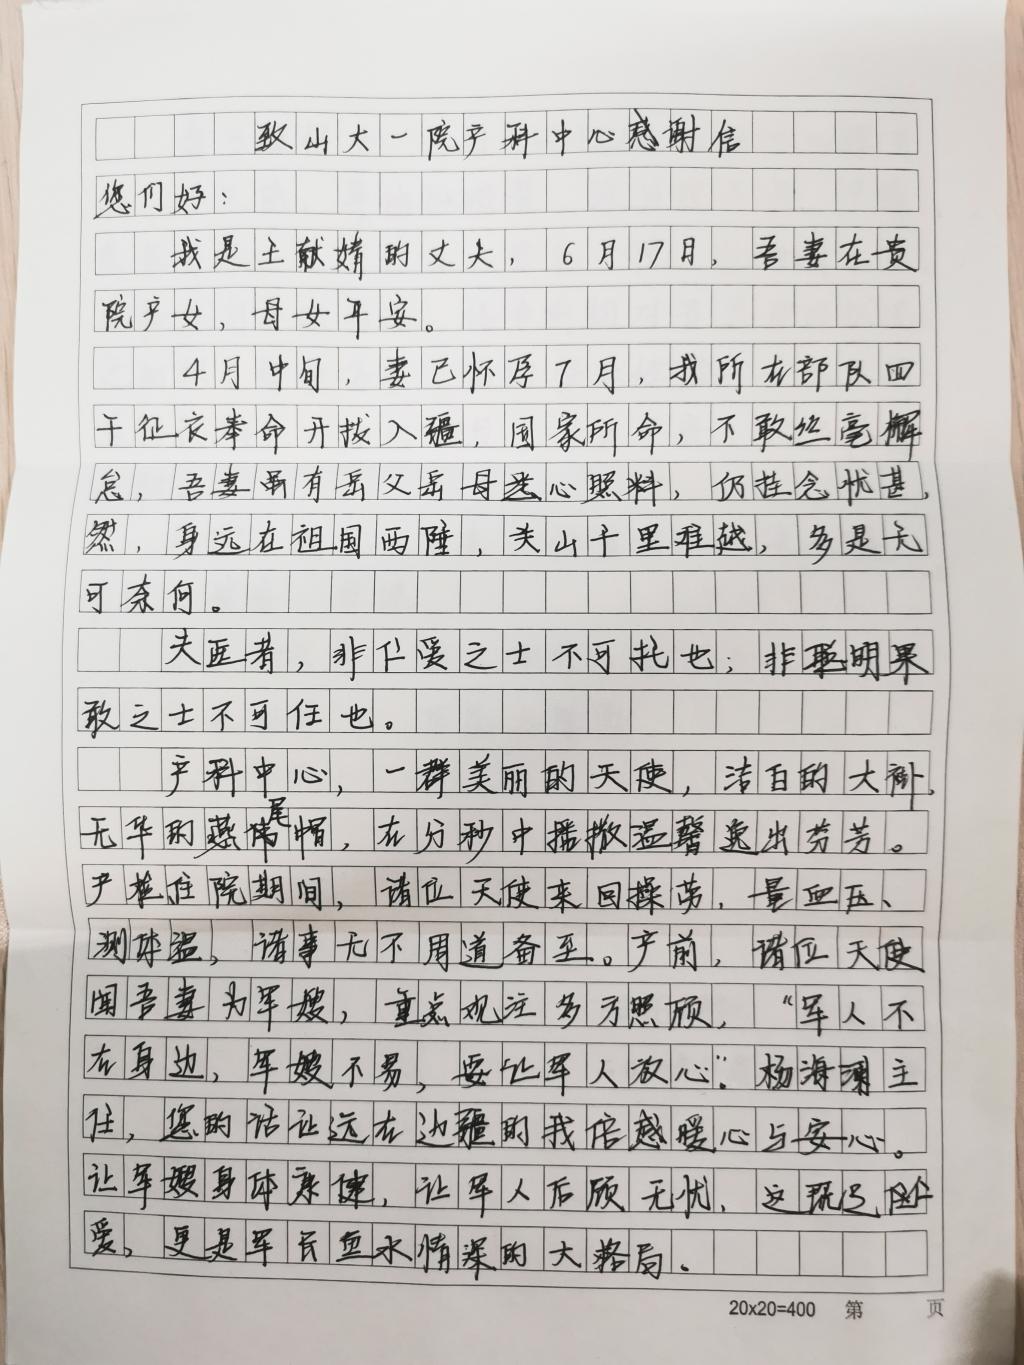 致山大一院产科中心感谢信
您们好：
我是王献婧的丈夫，6月17日，吾妻在贵
院产女，母女平安。
4月中旬，妻已怀孕7月，我所在部队四
千征衣奉命开拔入疆，国家所命，不敢丝毫懈
怠，吾妻虽有岳父岳母悉心照料，仍挂念忧甚，
然，身远在祖国西陲，关山千里难越，多是无
可奈何。
夫医者，非仁爱之士不可托也；非聪明果
敢之士不可任也。
产科中心，一群美丽的天使，洁白的大褂，
无华的燕尾帽，在分秒中播撒温馨逸出芬芳。
产程住院期间，诸位天使来回操劳，量血压、
测体温，诸事无不周道备至。产前，诸位天使
闻吾妻为军嫂，重点观注多方照顾，“军人不
在身边，军嫂不易，要让军人放心”。杨海澜主
任，您的话让远在边疆的我倍感暖心与安心。
让军嫂身体康健，让军人后顾无忧，这既是
爱，更是军民鱼水情深的大格局。
20x20=400 第 页